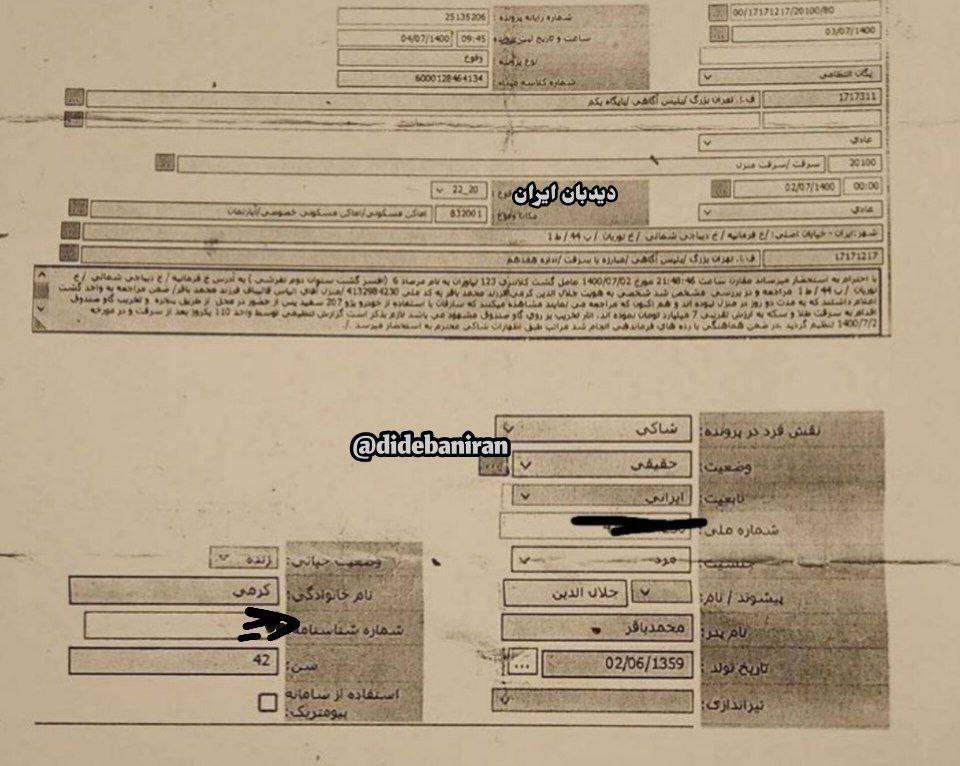 شماره رایانه پرونده : 25135206
00/17171217/20100/80
ساعت و تاریخ ثبت پرونده 09:45 04/07/1400
03/07/1400
نوع پرونده : وقوع
شماره کلاسه 6000128464134
یگان انتظامی
1717311 ف.ا. تهران بزرگ /پلیس آگاهی /پایگاه یکم
عادی
20100 سرقت /سرقت منزل
00:00 02/07/1400
22_20
دیدبان ایران
عادی
832001 اماکن مسکونی/اماکن مسکونی خصوصی/آپارتمان
شهر:ایران - خیابان اصلی: /خ فرمانیه / خ دیباجی شمالی / خ نوریان / پ 44 / ط 1
17171217 ف.ا. تهران بزرگ /پلیس آگاهی /مبارزه با سرقت /اداره هفدهم
با احترام به استحضار میرساند مقارن ساعت 21:48:46 مورخ 1400/07/02 عامل گشت کلانتری 123 نیاوران به نام مرصاد 6 (افسر گشت ستوان دوم تفرشی ) به آدرس خ فرمانیه / خ دیباجی شمالی / خ
نوریان / پ 44 / ط 1 مراجعه و در بررسی مشخص شد شخصی به هویت جلال الدین کرمی فرزند محمد باقر به کد ملی 4132984230 /منزل آقای عباس قالیباف فرزند محمد باقر/ ضمن مراجعه به واحد گشت
اعلام داشتند که به مدت دو روز در منزل نبوده اند و هم اکنون که مراجعه می نمایند مشاهده میکنند که سارقان با استفاده از خودرو پژو 207 سفید پس از حضور در محل از طریق پنجره و تخریب گاو صندوق
اقدام به سرقت طلا و سکه به ارزش تقریبی 7 میلیارد تومان نموده اند، اثار تخریب بر روی گاو صندوق مشهود می باشد لازم بذکر است گزارش تنظیمی توسط واحد 110 یکروز بعد از سرقت و در مورخه
1400/7/2 تنظیم گردید .در ضمن هماهنگی با رده های فرماندهی انجام شد مراتب طبق اظهارات شاکی محترم به استحضار میرسد ./
@didebaniran
نقش فرد در پرونده: شاکی
وضعیت: حقیقی
تابعیت: ایرانی
شماره ملی:
جنسیت: مرد
وضعیت حیاتی: زنده
پیشوند / نام: جلال الدین
نام خانوادگی: کرمی
نام پدر: محمدباقر
شماره شناسنامه
تاریخ تولد : 02/06/1359 ...
سن: 42
تیراندازی:
استفاده از سامانه
بیومتریک: